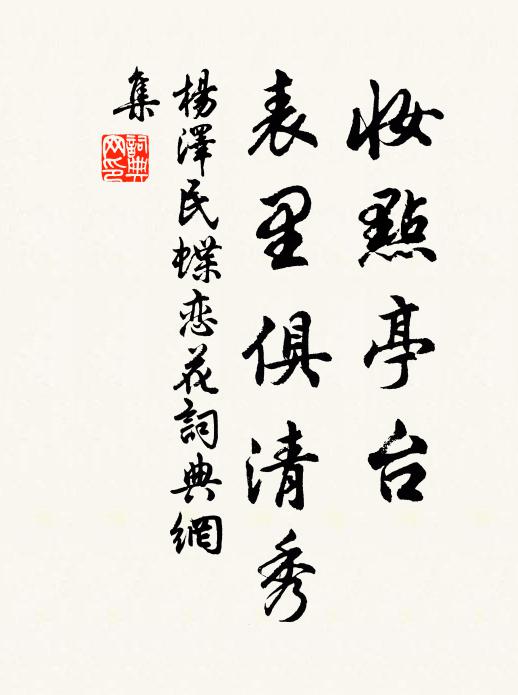 妆點亭台
表里俱清秀
楊澤民蝶恋花詞典網
集
詞典
网印